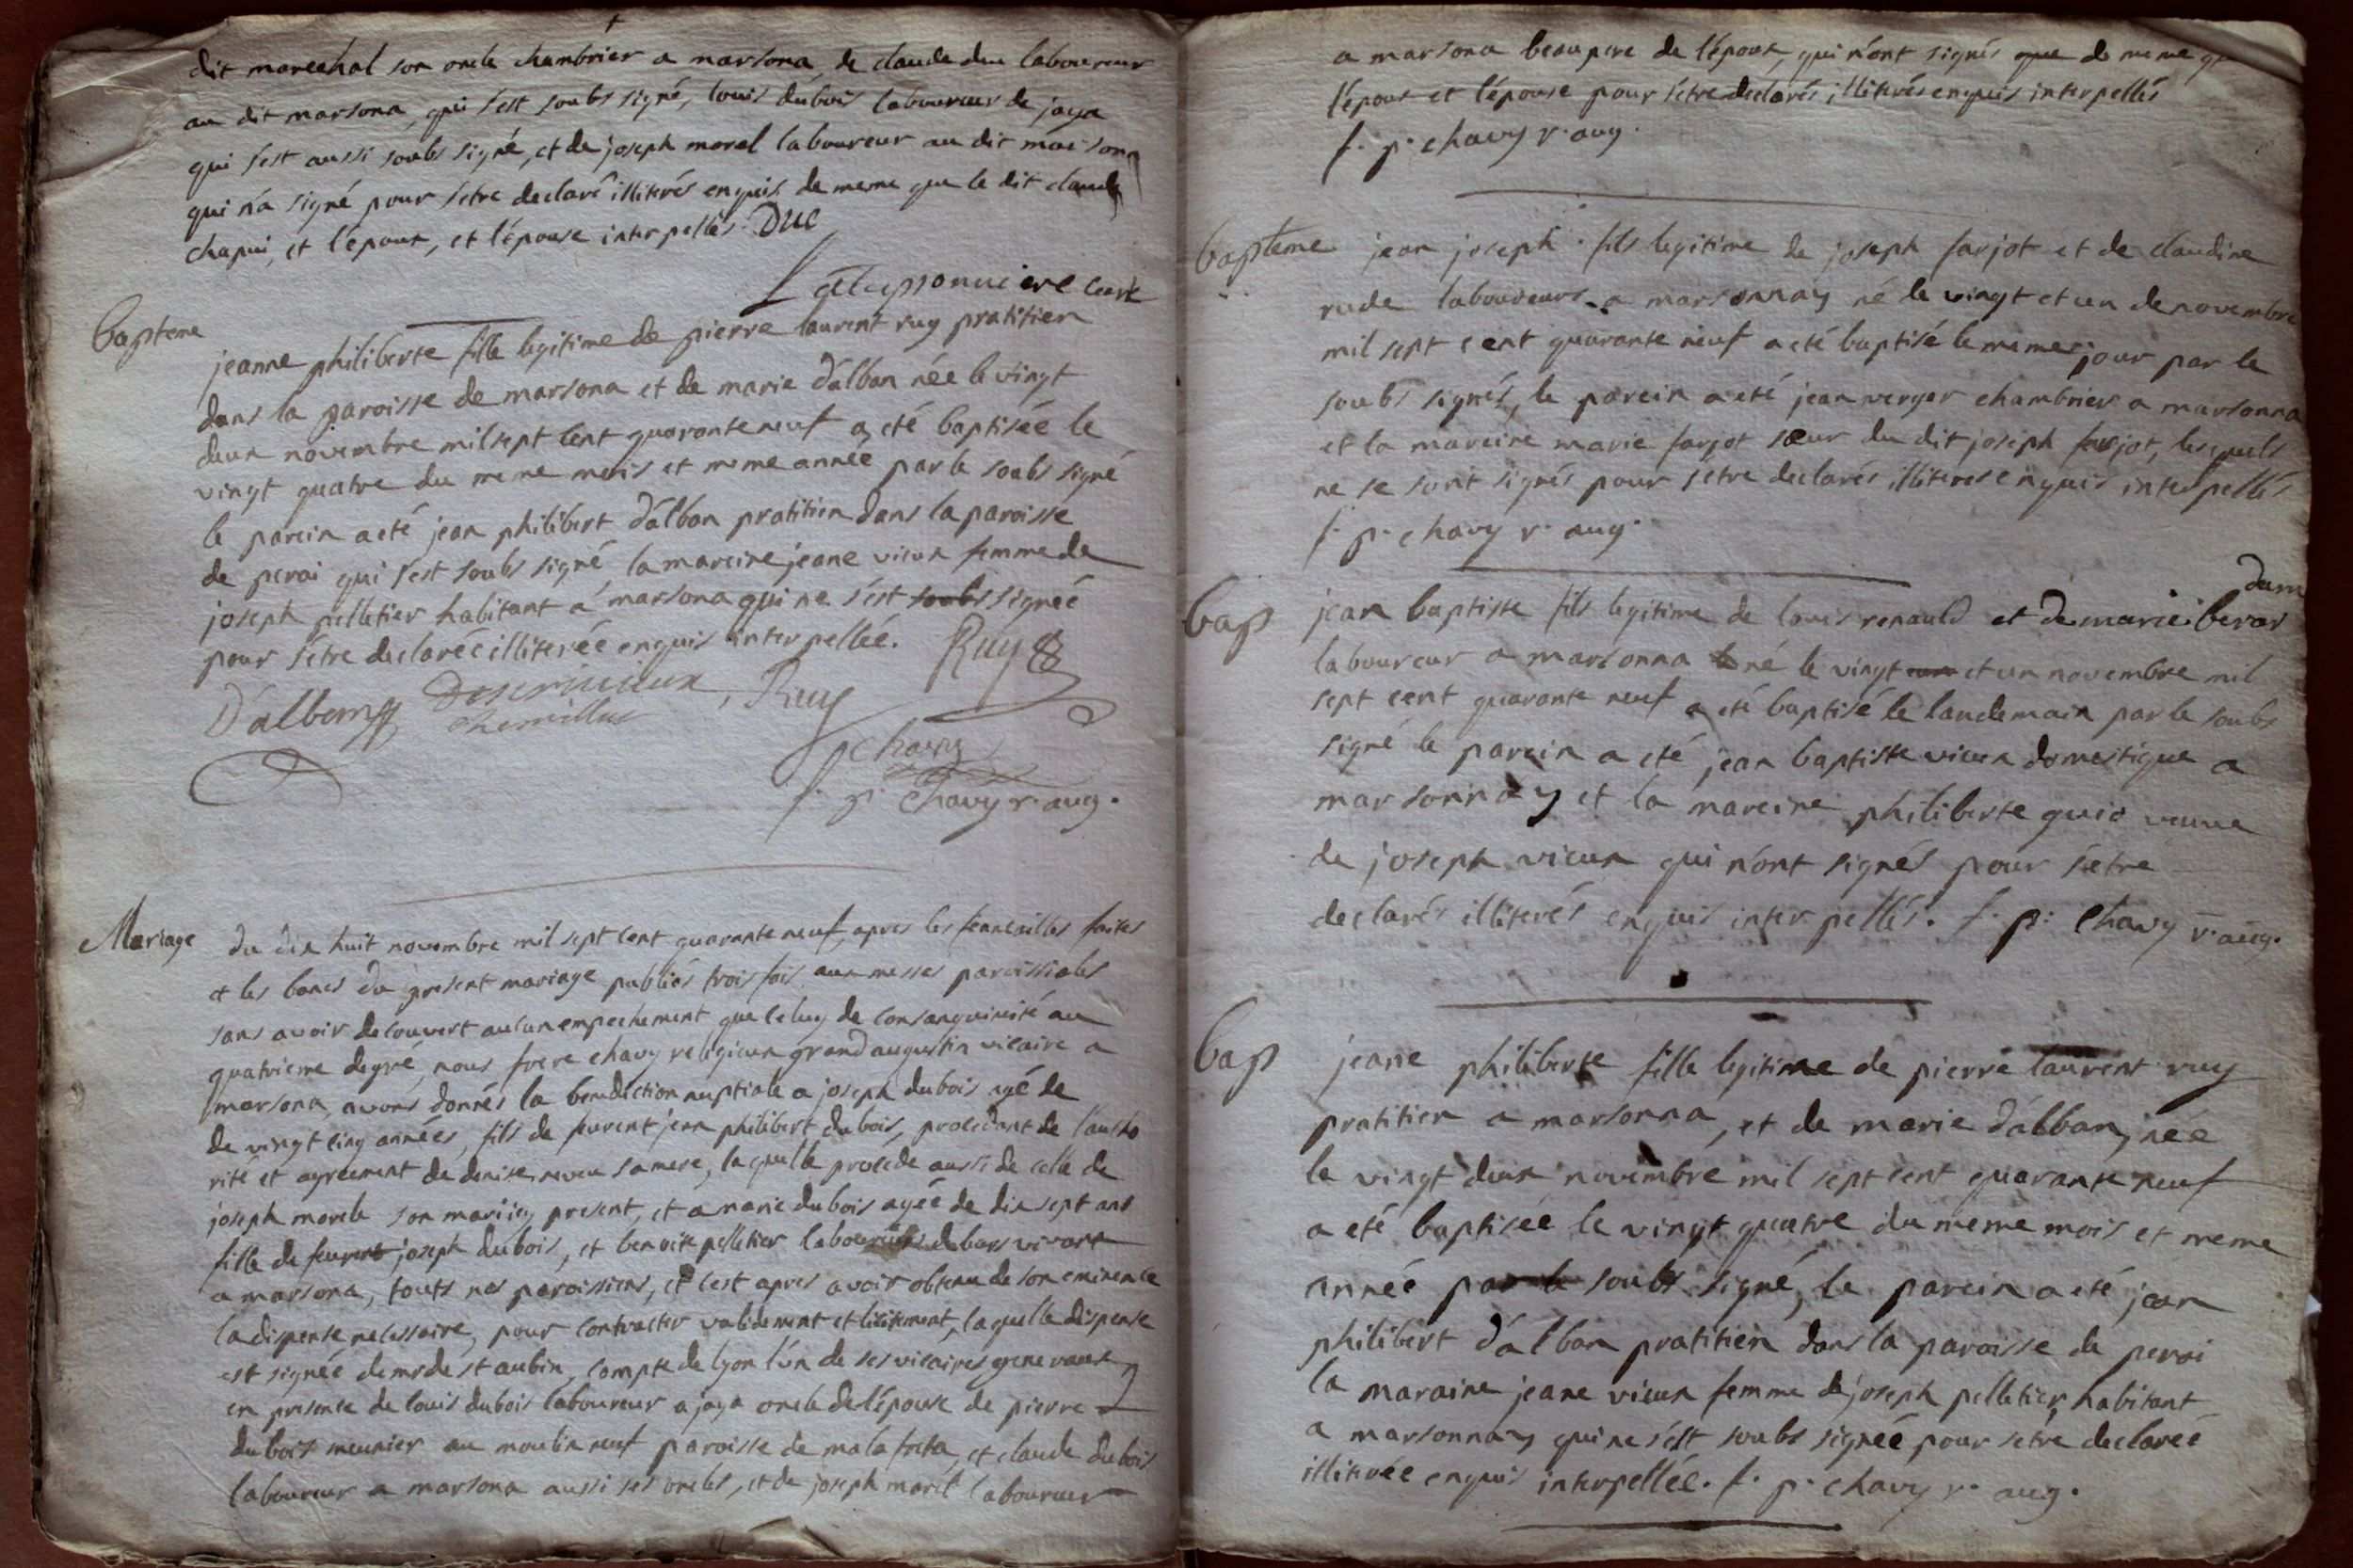 dit marechal son oncle chambrier a marsona, de claude duc laboureur
au dit marsona, qui s'est soubs signé, louis dubois laboureur de jaya
qui s'est aussi soubs signé, et de joseph morel laboureur au dit marsona
qui n'a signé pour s'etre declaré illiterés enquis de meme que le dit claude
chapui, et l'epoux, et l'épouse interpellés. Duc
curé
Bapteme
jeanne philiberte fille legitime de pierre laurent ruy pratitien
dans la paroisse de marsona et de marie d'alban née le vingt
deux novembre mil sept cent quarante neuf a eté baptisée le
vingt quatre du meme mois et meme année par le soubs signé
le parein a eté jean philibert d'alban pratitien dans la paroisse
de peroi qui s'est soubs signé, la mareine jeane vieux femme de
joseph pelletier habitant a marsona qui ne s'est soubs signée
pour s'etre declarée illiterée enquis interpellée. Ruy
D'alban Ruy
chavy
f. p. chavy r. aug.
Mariage
du dix huit novembre mil sept cent quarante neuf, apres les feancailles faites
et les bancs du present mariage publiés trois fois aux messes paroissiales
sans avoir decouvert aucun empechement que celuy de consanguinité au
quatrieme degré, nous frere chavy religieux grand augustin vicaire a
marsona, avons donnés la benediction nuptiale a joseph dubois agé de
de vingt cinq années, fils de feu jean philibert dubois, procedant de l'autho
rité et agreement de denise neveu sa mere, laquelle procede aussi de celle de
joseph morele son mari icy present, et a marie dubois agée de dix sept ans
fille de feu joseph dubois, et benoite pelletier laboureurs vivant
a marsona, touts nos paroissiens, et c'est apres avoir obtenu de son eminence
la dispense necessaire, pour contracter validement et licitement, laquelle dispense
est signée de mr de st aubin, compte de lyon l'un de ses vicaires generaux
en presence de louis dubois laboureur a jaya oncle de l'épouse de pierre
dubois meunier au moulin neuf paroisse de malafreta, et claude dubois
laboureur a marsona aussi ses oncles, et de joseph marel laboureur
a marsona beaupere de l'époux, qui n'ont signés que de meme que
l'époux et l'épouse pour s'etre declarés illiterés enquis interpellés
f. p. chavy r. aug.
bapteme
jean joseph fils legitime de joseph farjot et de claudine
rude laboureurs a marsonnay né le vingt et un de novembre
mil sept cent quarante neuf a eté baptisé le meme jour par le
soubs signés, le parein a eté jean verger chambrier a marsonna
et la mareine marie farjot sœur du dit joseph farjot, lesquels
ne se sont signés pour s'etre declarés illiterés enquis interpellés
f. p. chavy r. aug.
bap
jean baptiste fils legitime de louis renauld et de marie berar
laboureur a marsonna né le vingt et un novembre mil
sept cent quarante neuf a eté baptisé le landemain par le soubs
signé le parein a eté jean baptiste vieux domestique a
marsonnay et la mareine philiberte veuve
de joseph vieux qui n'ont signés pour s'etre
declarés illiterés enquis interpellés. f. p. chavy r. aug.
bap
jeane philiberte fille legitime de pierre laurent ruy
pratitien a marsonna, et de marie d'alban, née
le vingt deux novembre mil sept cent quarante neuf
a eté baptisée le vingt quatre du meme mois et meme
année par le soubs signé, le parein a eté jean
philibert d'alban pratitien dans la paroisse de peroi
la maraine jeane vieux femme de joseph pelletier habitant
a marsonnay qui ne s'est soubs signée pour s'etre declarée
illiterée enquis interpellée. f. p. chavy r. aug.